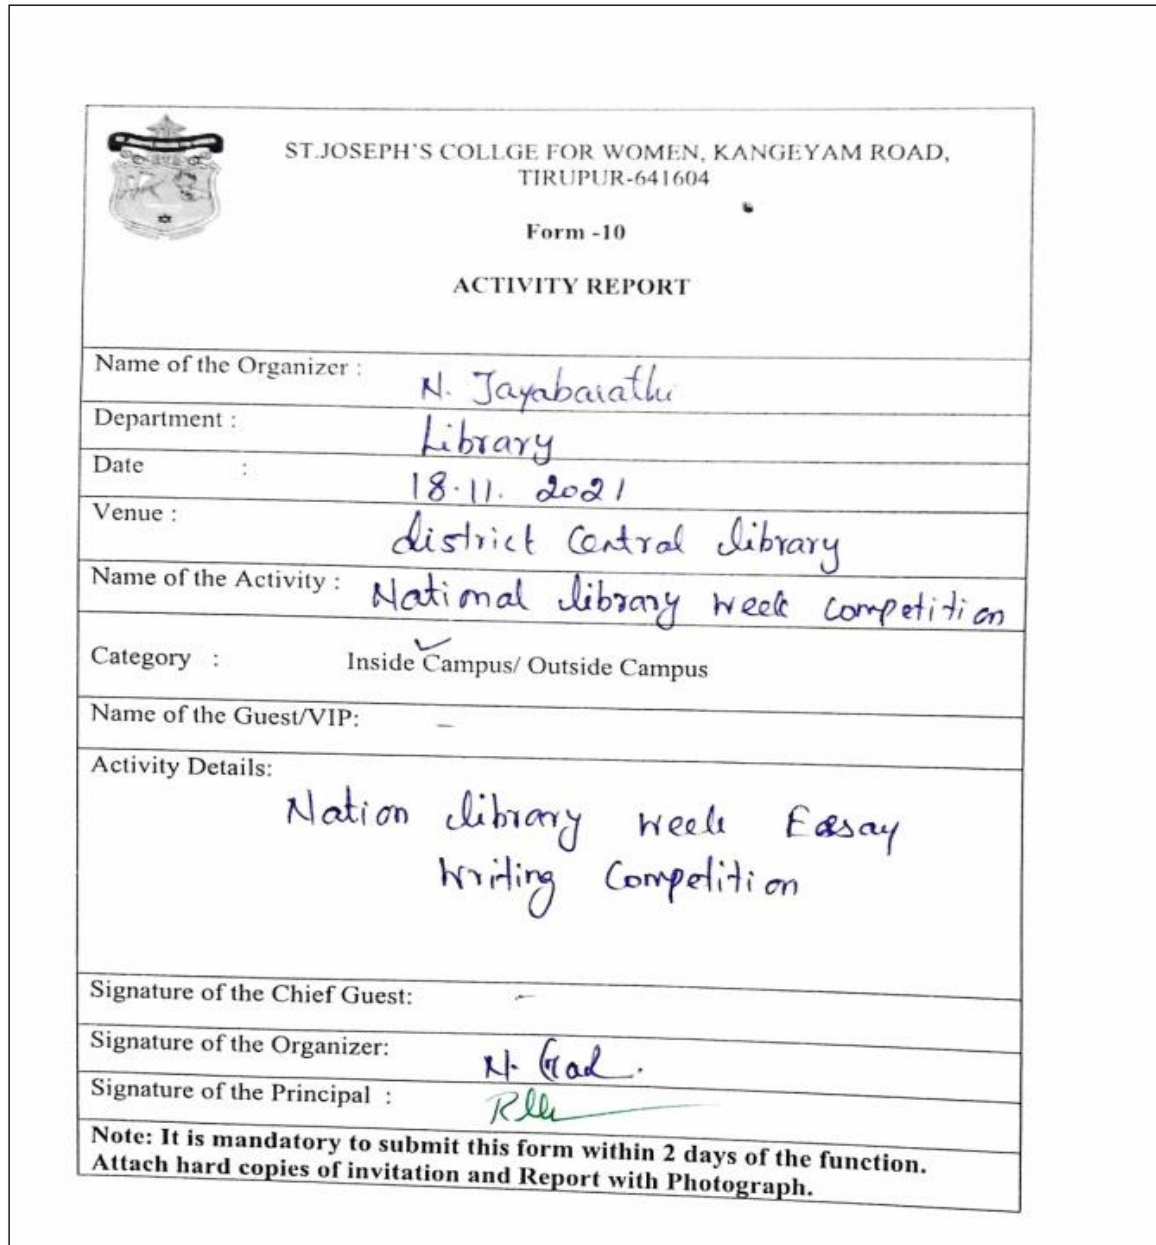 ST.JOSEPH'S COLLGE FOR WOMEN, KANGEYAM ROAD,
TIRUPUR-641604
Form -10
ACTIVITY REPORT
Name of the Organizer : N. Jayabarathi
Department : Library
Date : 18.11. 2021
Venue : district Central library
Name of the Activity : National library week competition
Category : Inside Campus/ Outside Campus
Name of the Guest/VIP: –
Activity Details:
Nation library week Essay
Writing Competition
Signature of the Chief Guest: –
Signature of the Organizer:
Signature of the Principal :
Note: It is mandatory to submit this form within 2 days of the function.
Attach hard copies of invitation and Report with Photograph.